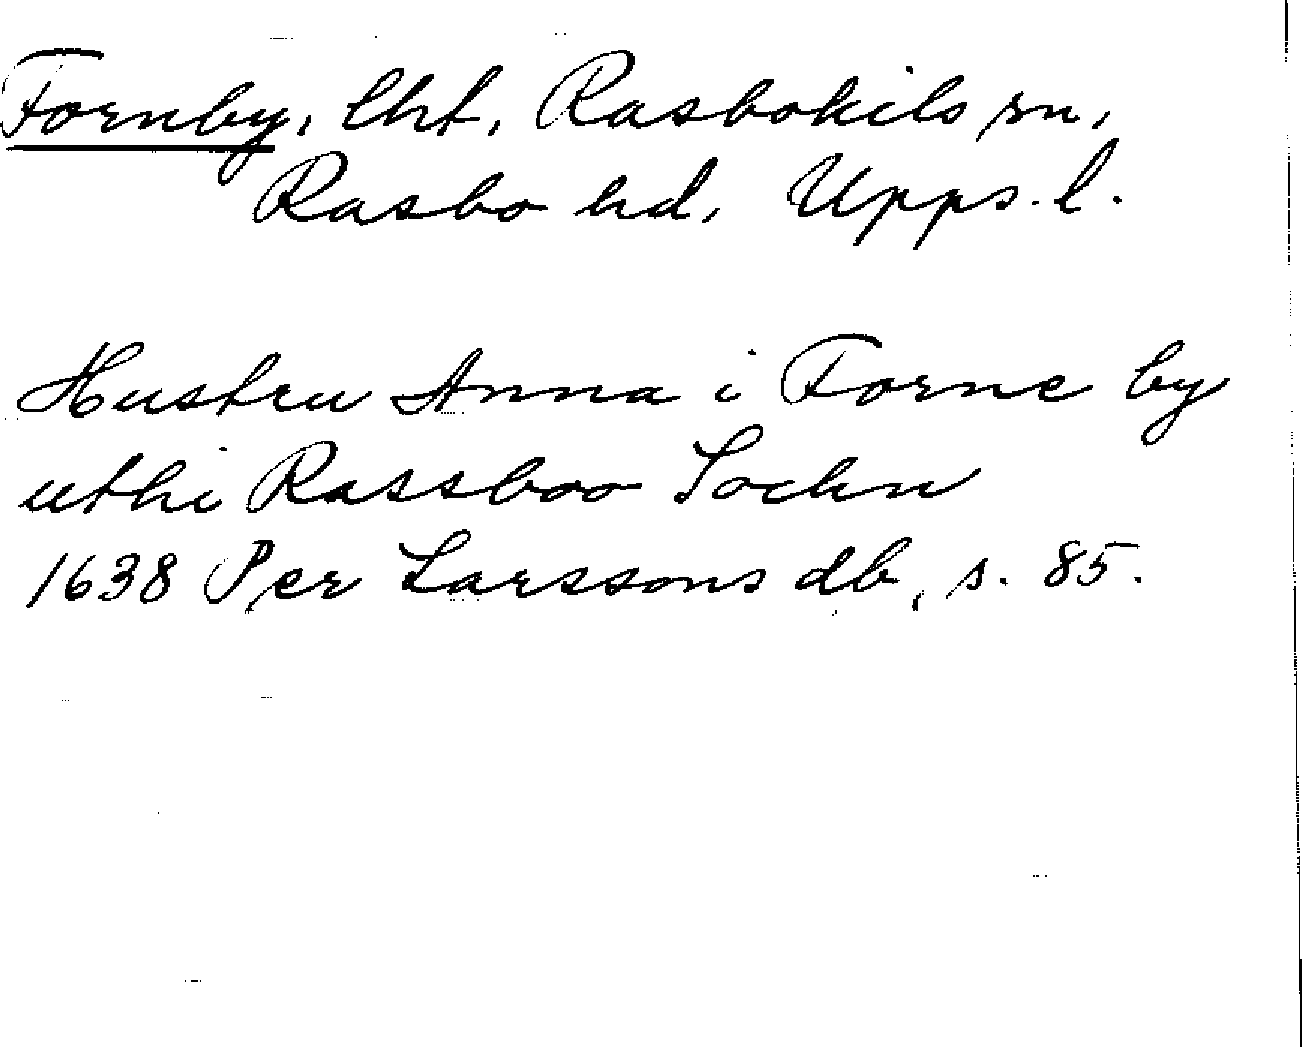 Fornby, lht, Rasbokils sn,
Rasbo hd, Upps. l.
Hustru Anna i Forne by
uthi Rassboo Sochn
1638 Per Larssons db, s. 85.